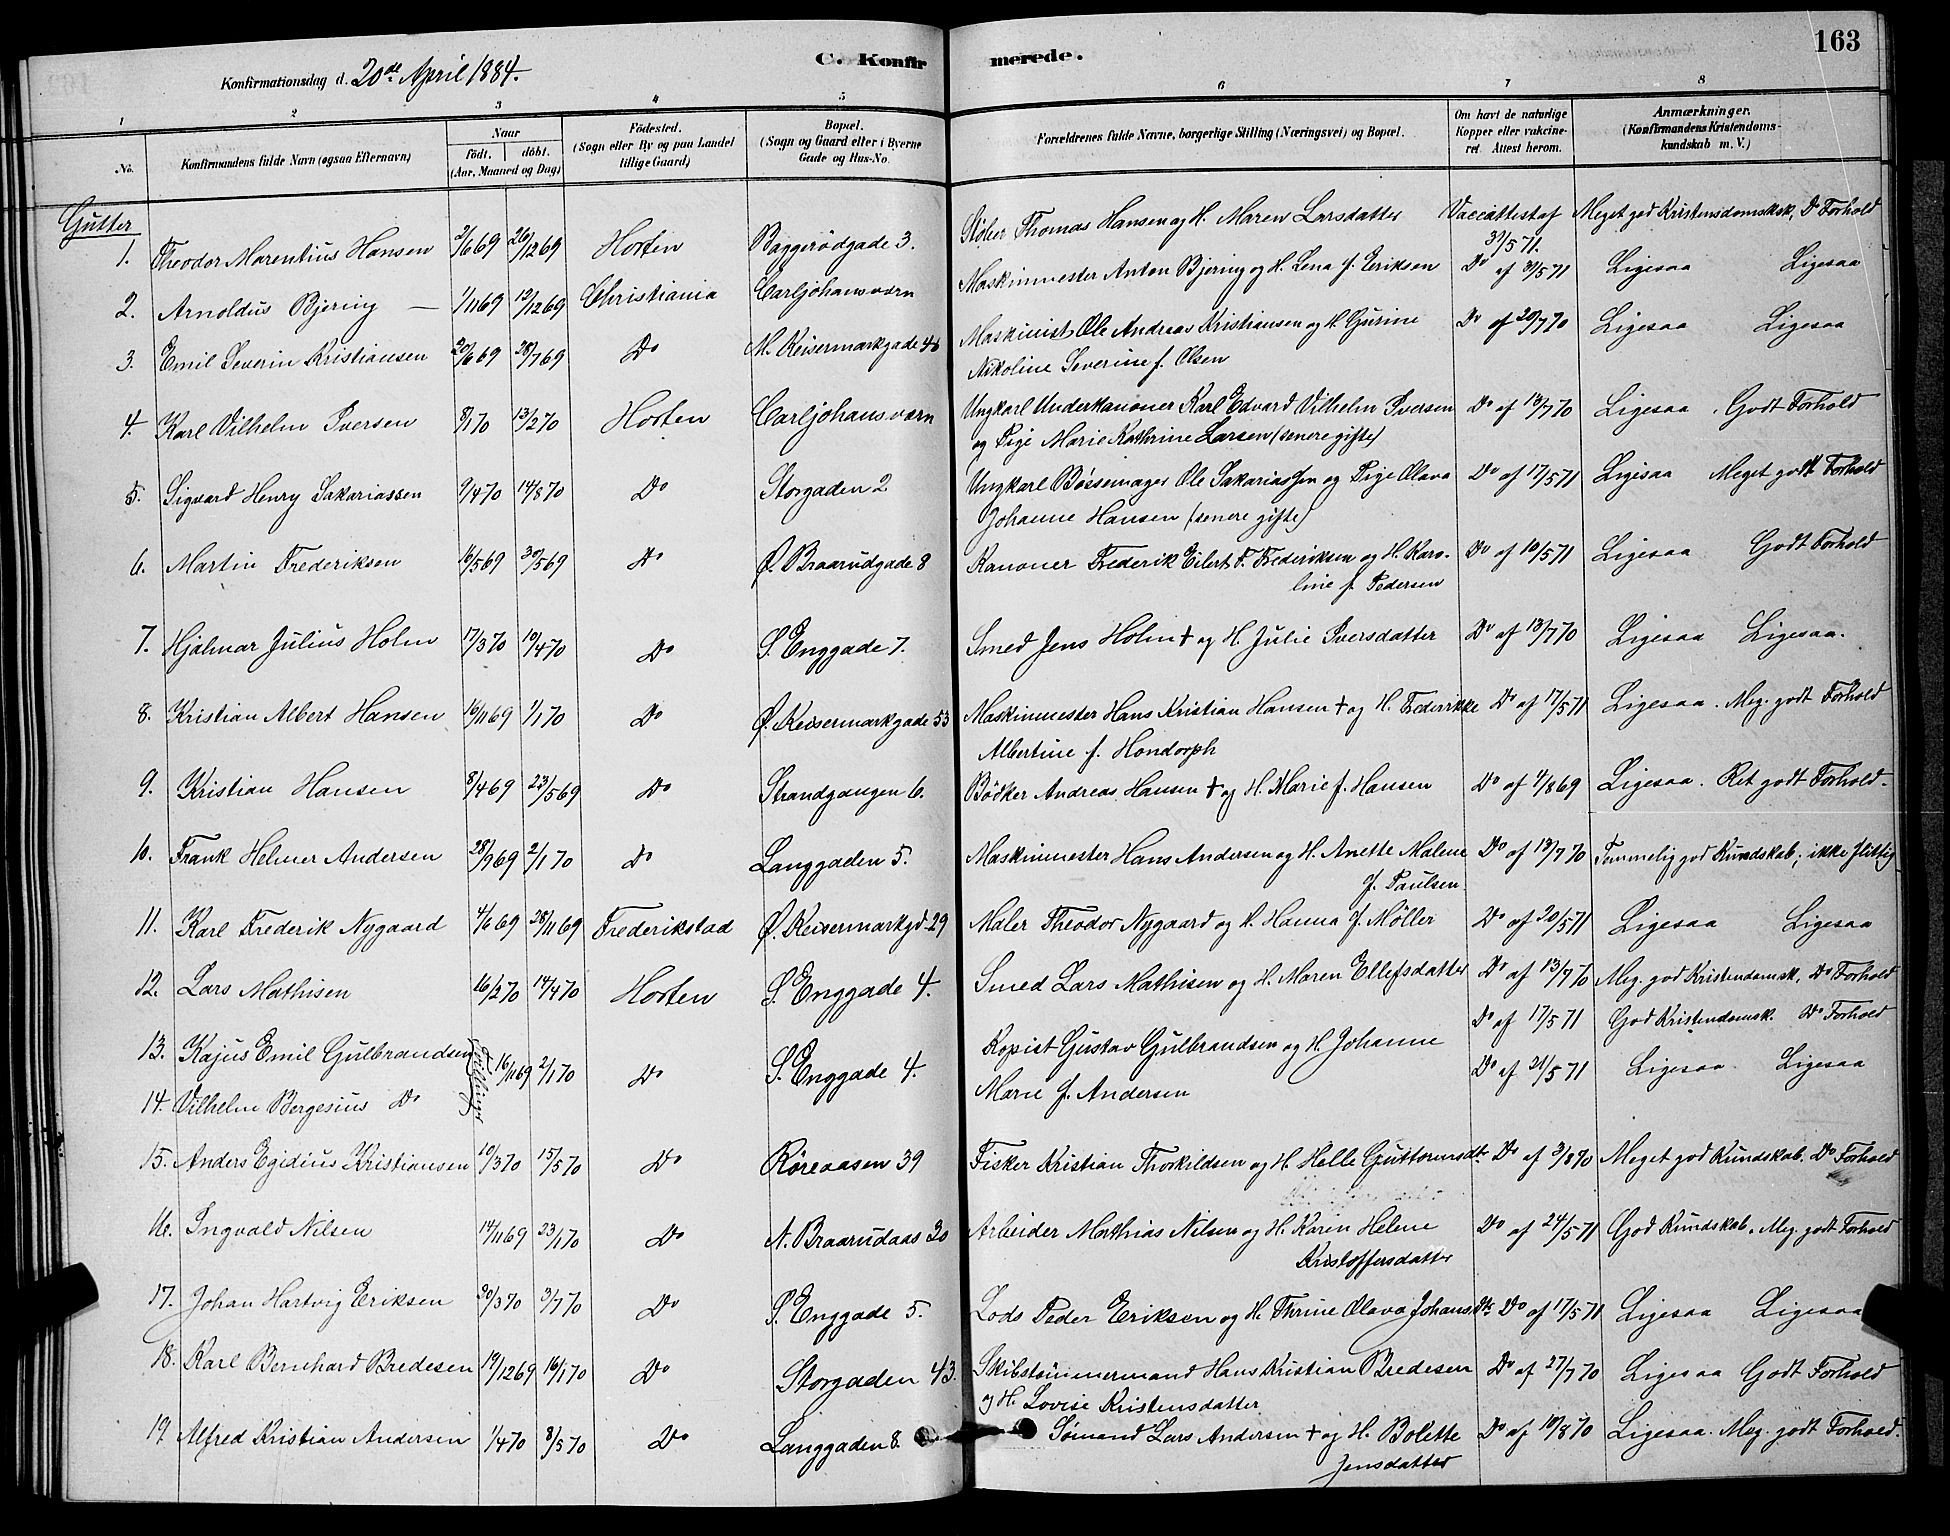 163
C. Konfirmerede.
Konfirmationsdag d. 20de April 1884.
1 2 3 4 5 6 7 8
No. Konfirmandens fulde Navn (ogsaa Efternavn) Naar födt. döbt. (Aar, Maaned og Dag) Födested. (Sogn eller By og paa Landet tillige Gaard) Bopæl. (Sogn og Gaard eller i Byerne Gade og Hus-No. Forældrenes fulde Navne, borgerlige Stilling (Næringsvei) og Bopæl. Om havt de naturlige Kopper eller vakcineret. Attest herom. Anmærkninger. (Konfirmandens Kristendomskundskab m. V.)
Gutter
1. Theodor Marentius Hansen 2/6 69 26/12 69 Horten Baggerödgade 3. Støber Thomas Hansen og H. Maren Larsdatter Vaccattest af 31/5 71. Meget god Kristendomsksk, Do Forhold
2. Arnoldus Bjering — 1/11 69 12/12 69 Christiania Carljohansværn Maskinmester Anton Bjering og H. Lena f. Eriksen Do af 31/5 71 Ligesaa Ligesaa
3. Emil Severin Kristiansen 20/6 69 28/7 69 Do M. Keisermarkgade 46 Maskinist Ole Andreas Kristiansen og H. Gurine Do af 20/7 70 Ligesaa Ligesaa
Nikoline Severine f. Olsen
4. Karl Vilhelm Iversen 8/1 70 13/2 70 Horten Carljohansværn Ungkarl Underkanoner Karl Edvard Vilhelm Iversen Do af 13/7 70 Ligesaa . Godt Forhold
og Pige Marie Kathrine Larsen (senere gifte)
5. Sigvard Henry Sakariassen 9/4 70 14/8 70 Do Storgaden 2 Ungkarl Bøssemager Ole Sakariassen og Pige Olava Do af 17/5 71 Ligesaa Meget godt Forhold
Johanne Hansen (senere gifte)
6. Martin Frederiksen 16/5 69 30/5 69 Do Ø. Braarudgade 8 Kanoner Frederik Eilert F. Frederiksen og H. Karo- Do af 10/5 71 Ligesaa Godt Forhold
line f. Pedersen
7. Hjalmar Julius Holm 17/3 70 10/4 70 Do S. Enggade 7. Smed Jens Holm + og H. Julie Iversdatter Do af 13/7 70 Ligesaa Ligesaa.
8. Kristian Albert Hansen 16/11 69 1/1 70 Do Ø. Keisermarkgade 53 Maskinmester Hans Kristian Hansen + og H. Frederikke Do af 17/5 71 Ligesaa . Meg. godt Forhold
Albertine f. Hondorph
9. Kristian Hansen 8/4 69 23/5 69 Do Strandgangen 6. Bödker Andreas Hansen + og H. Marie f. Hansen Do af 9/8 69 Ligesaa . Ret godt Forhold.
10. Frank Helmer Andersen 28/9 69 2/1 70 Do Langgaden 5. Maskinmester Hans Andersen og H. Anette Malene Do af 13/7 70 Temmelig god Kundskab; ikke flittig
f. Paulsen
11. Karl Frederik Nygaard 4/6 69 28/11 69 Frederikstad Ø. Keisermarkgd. 29 Maler Theodor Nygaard og H. Hanna f. Möller Do af 20/5 71 Ligesaa Ligesaa
12. Lars Mathisen 16/2 70 14/4 70 Horten S. Enggade 4. Smed Lars Mathisen og H. Maren Ellefsdatter Do af 13/7 70 Meg. god Kristendomsk, Do Forhold
13. Kajus Emil Gulbrandsen (Tvillinger) 16/11 69 2/1 70 Do S. Enggade 4. Kopist Gustav Gulbrandsen og H. Johanne Do af 17/5 71 God Kristendomsk. Do Forhold
14. Vilhelm Bergesius Do Marie f. Andersen Do af 21/5 71 Ligesaa Ligesaa
15. Anders Egidius Kristiansen 10/3 70 15/5 70 Do Röreaasen 39 Fisker Kristian Thorkildsen og H. Helle Guttormsdt. Do af 3/8 70 Meget god Kundskab. Do Forhold
16. Ingvald Nilsen 14/11 69 23/1 70 Do N. Braarudaas 30 Arbeider Mathias Nilsen og H. Karen Helene Do af 24/5 71 God Kundskab. Meg. godt Forhold
Kristoffersdatter
17. Johan Hartvig Eriksen 30/3 70 3/7 70 Do S. Enggade 5. Lods Peder Eriksen og H. Thrine Olava Johansdt. Do af 17/5 71 Ligesaa Ligesaa
18. Karl Bernhard Bredesen 19/12 69 16/1 70 Do Storgaden 43. Skibstömmermand Hans Kristian Bredesen Do af 27/7 70 Ligesaa Godt Forhold
og H. Lovise Kristensdatter
19. Alfred Kristian Andersen 1/4 70 8/5 70 Do Langgaden 8. Sömand Lars Andersen + og H. Bolette Do af 10/8 70 Ligesaa. Meg. godt Forhold.
Jensdatter